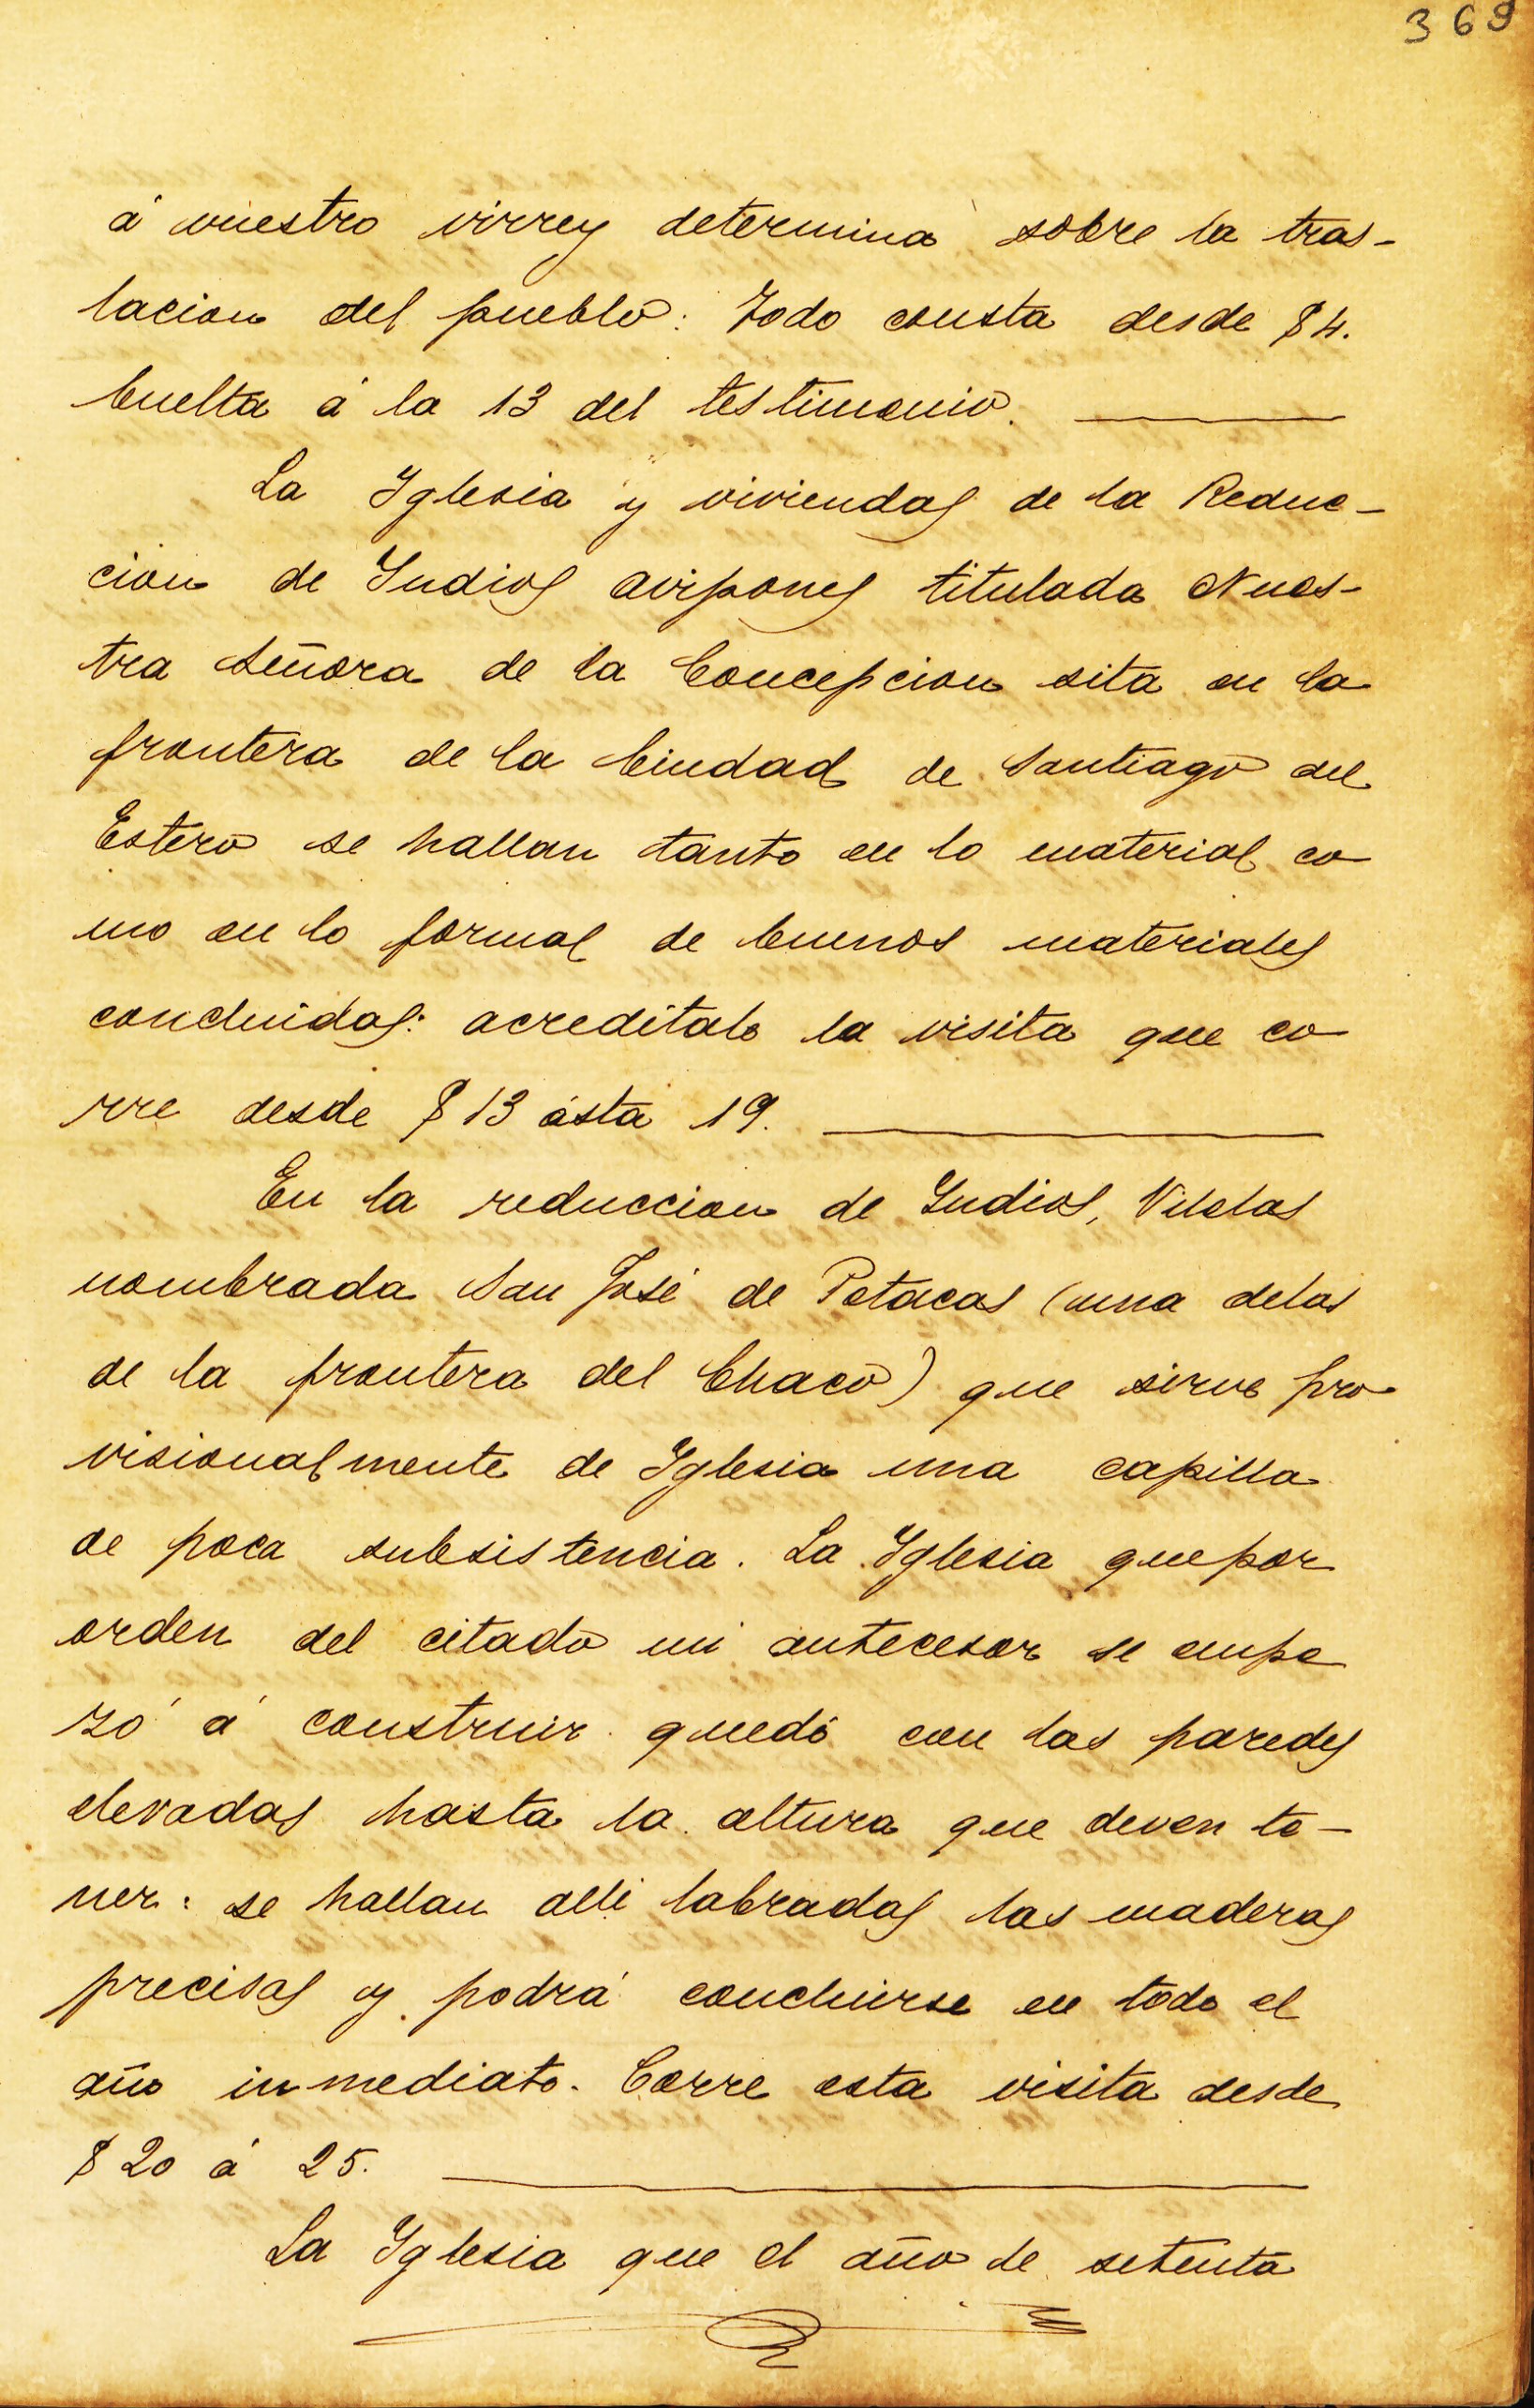 369
á vuestro virrey determina sobre la tras-
lacion del pueblo: Todo consta desde $ 4.
buelta á la 13 del testimonio.
La Iglesia y viviendas de la Reduc-
cion de Indios avipones titulada Nues-
tra Señora de la Concepcion sita en la
frontera de la Ciudad de Santiago del
Estero se hallan tanto en lo material co
mo en lo formal de buenos materiales
concluidas: acreditalo la visita que co
rre desde $ 13 ásta 19.
En la reduccion de Indios, Vilelas
nombrada San José de Petacas (una delas
de la frontera del Chaco) que sirve pro
visionalmente de Iglesia una capilla
de poca subsistencia. La Iglesia quepor
orden del citado mi antecesor se empe
zó á construir quedó con las paredes
elevadas hasta la altura que deven te-
ner: se hallan alli labradas las maderas
precisas y podrá concluirse en todo el
año inmediato. Corre esta visita desde
$ 20 á 25.
La Iglesia que el año de setenta